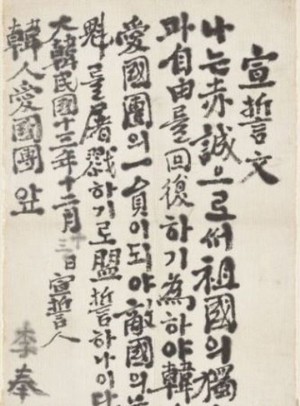 宣誓文
나는赤誠으로써祖國의獨
과自由를回復하기爲하야韓
愛國團의一員이되야敵國의
魁를屠戮하기로盟誓하나이다
大韓民國十三年十二月十三日宣誓人
韓人愛國團앞 李奉